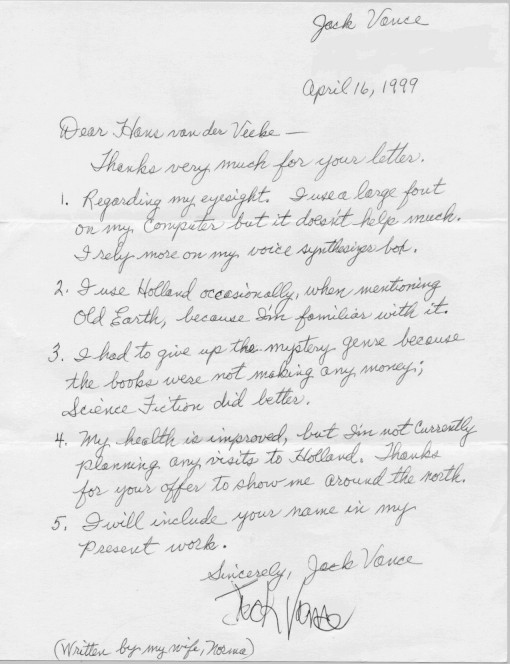 Jack Vance
April 16, 1999
Dear Hans van der Veeke —
Thanks very much for your letter.
1. Regarding my eyesight. I use a large font
on my computer but it doesn't help much.
I rely more on my voice synthesizer box.
2. I use Holland occasionally, when mentioning
Old Earth, because I'm familiar with it.
3. I had to give up the mystery genre because
the books were not making any money;
Science Fiction did better.
4. My health is improved, but I'm not currently
planning any visits to Holland. Thanks
for your offer to show me around the north.
5. I will include your name in my
present work.
Sincerely, Jack Vance
Jack Vance
(Written by my wife, Norma)